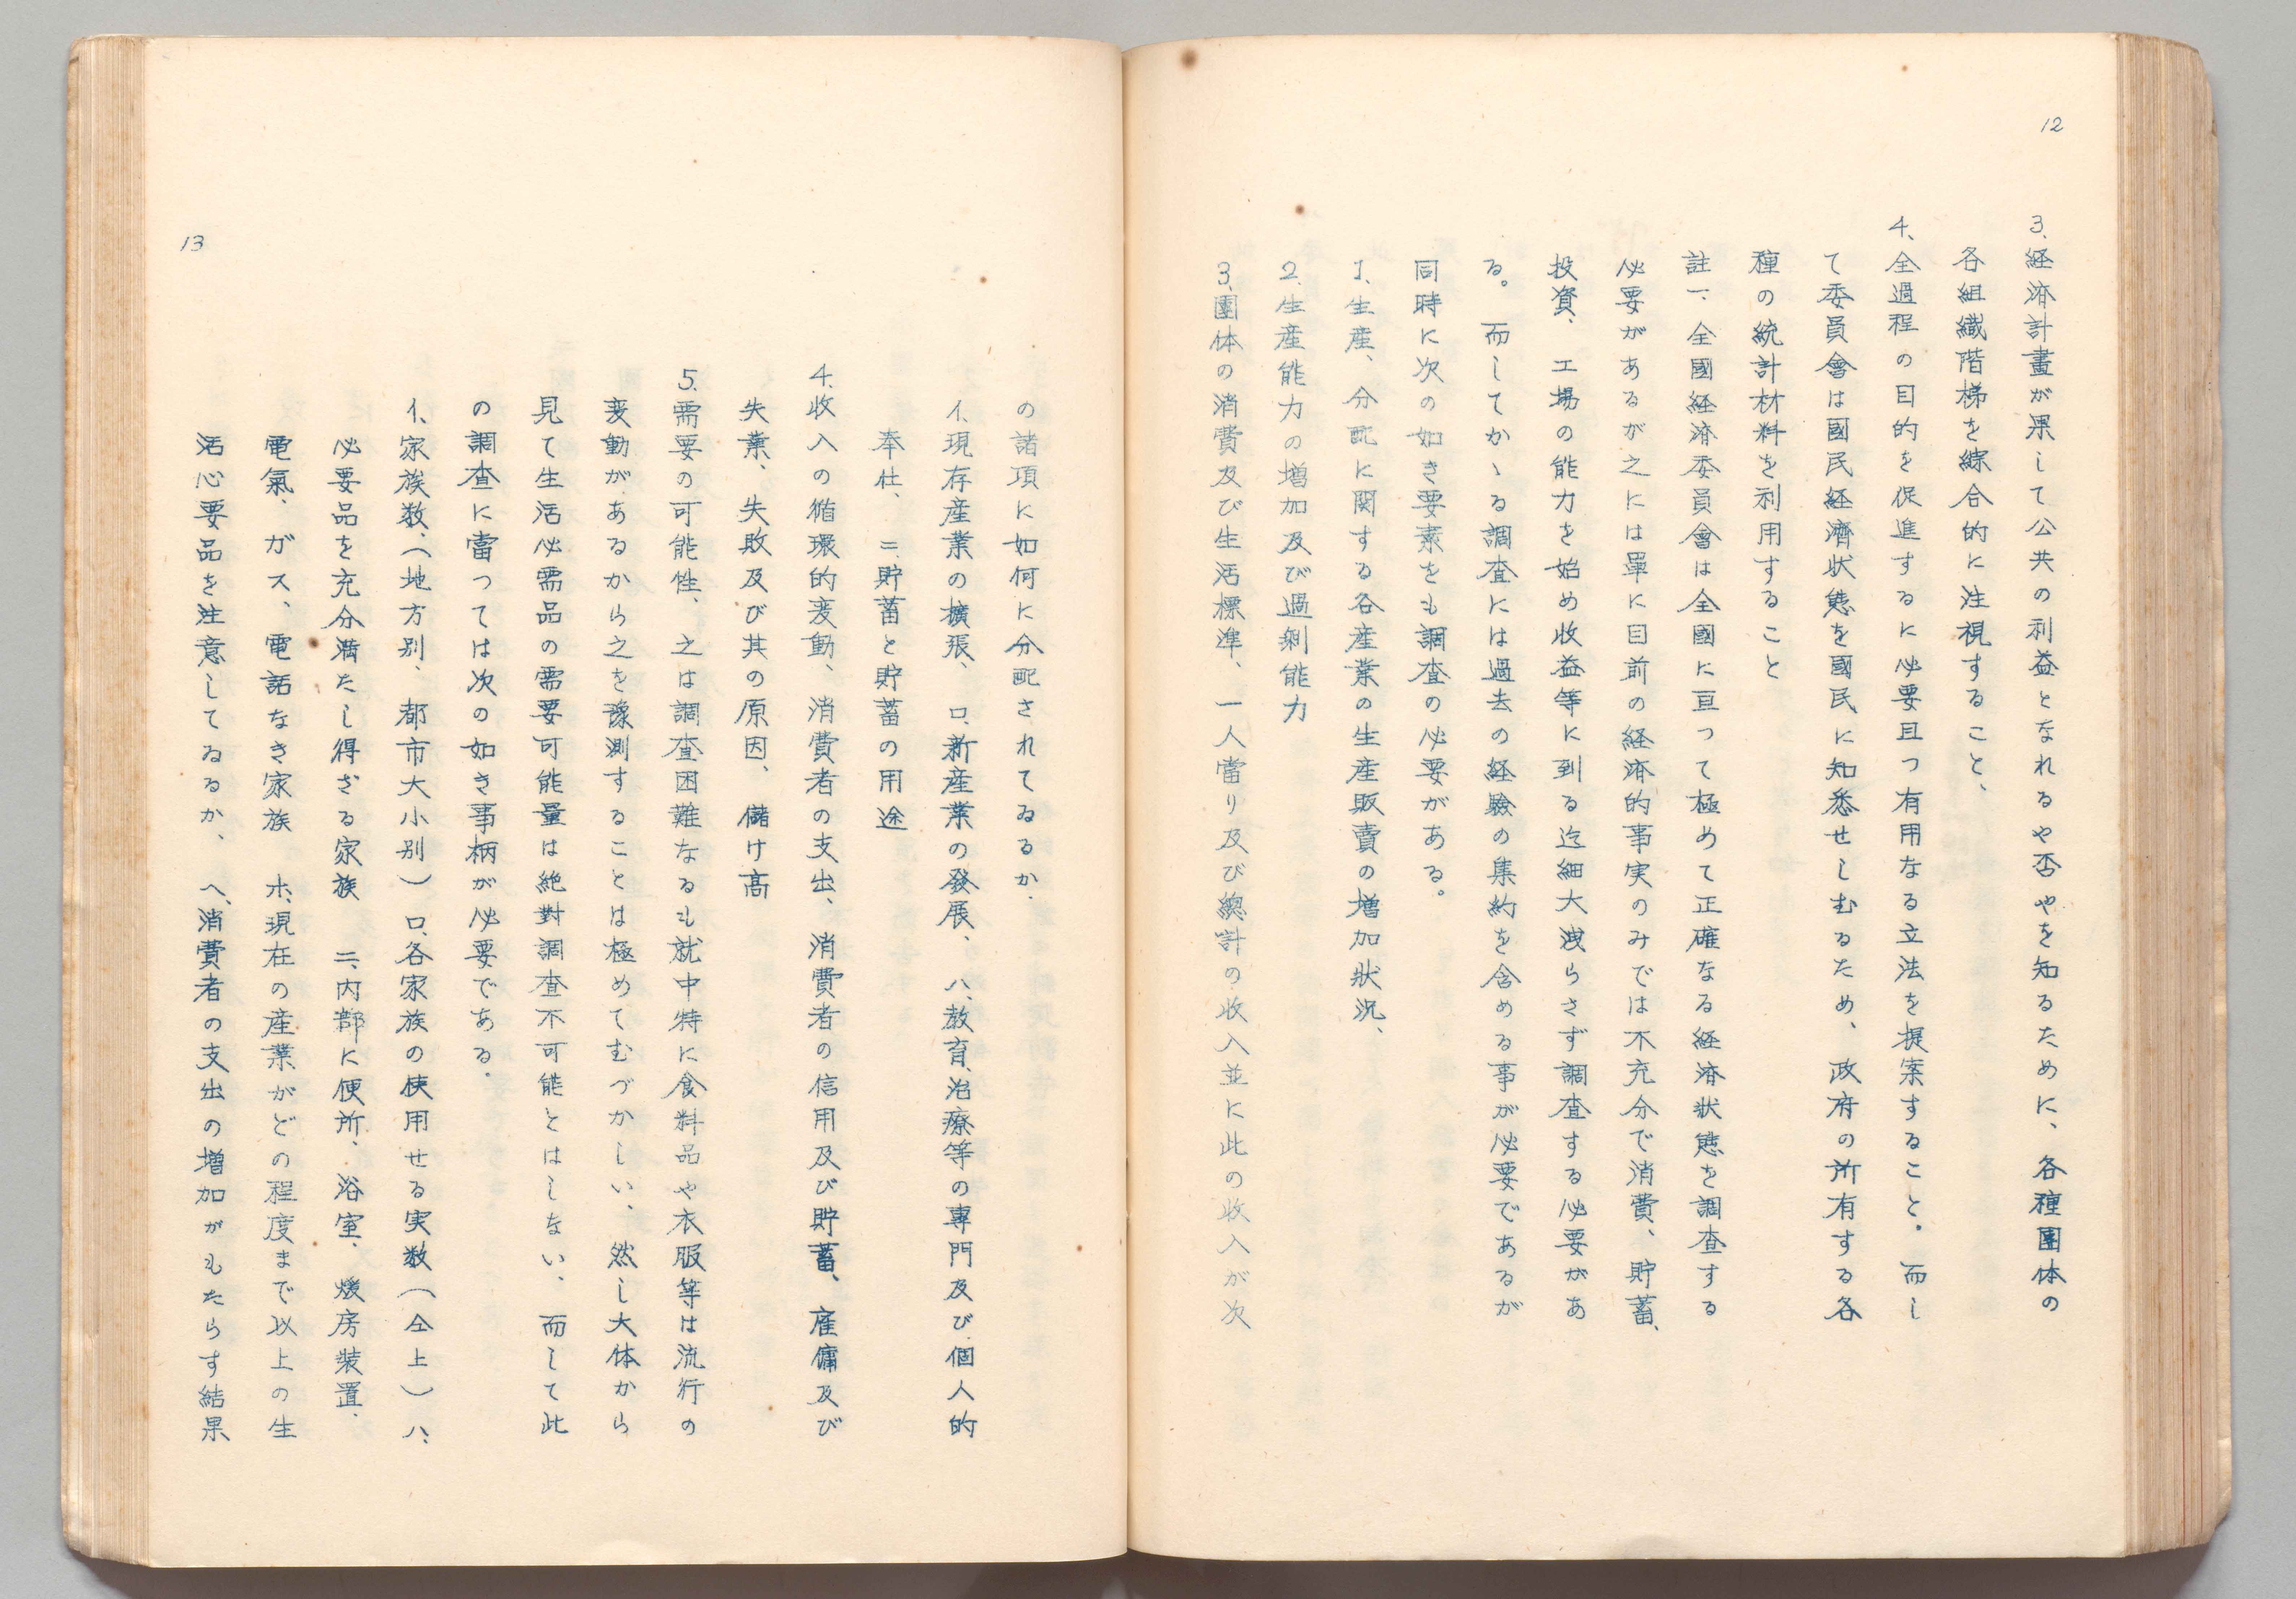 12
3、経済計畫が果して公共の利益となれるや否やを知るために、各種團体の
各組織階梯を綜合的に注視すること、
4、全過程の目的を促進するに必要且つ有用なる立法を提案すること。而し
て委員會は國民経濟状態を國民に知悉せしむるため、政府の所有する各
種の統計材料を利用すること
註一、全國経済委員會は全國に亘つて極めて正確なる経済状態を調査する
必要があるが之には單に目前の経済的事実のみでは不充分で消費、貯蓄、
投資、工場の能力を始め收益等に到る迄細大洩らさず調査する必要があ
る。而してかゝる調査には過去の経驗の集約を含める事が必要であるが
同時に次の如き要素をも調査の必要がある。
1、生産、分配に関する各産業の生産販賣の増加狀況、
2、生産能力の増加及び過剰能力
3、團体の消費及び生活標準、一人當り及び總計の收入並に此の收入が次
の諸項に如何に分配されてゐるか.
イ、現存産業の擴張、ロ、新産業の發展、ハ、敎育、治療等の專門及び個人的
奉仕、ニ、貯蓄と貯蓄の用途
4、收入の循環的変動、消費者の支出、消費者の信用及び貯蓄、雇傭及び
失業、失敗及び其の原因、儲け高
5、需要の可能性、之は調査困難なるも就中特に食料品や衣服等は流行の
変動があるから之を豫測することは極めてむづかしい、然し大体から
見て生活必需品の需要可能量は絶對調査不可能とはしない、而して此
の調査に當つては次の如き事柄が必要である.
イ、家族数、（地方別、都市大小別）ロ、各家族の使用せる実数（仝上）ハ、
必要品を充分満たし得ざる家族　ニ、内部に便所、浴室、煖房装置、
電氣、ガス、電話なき家族　ホ、現在の産業がどの程度まで以上の生
活心要品を注意してゐるか、ヘ、消費者の支出の増加がもたらす結果
13